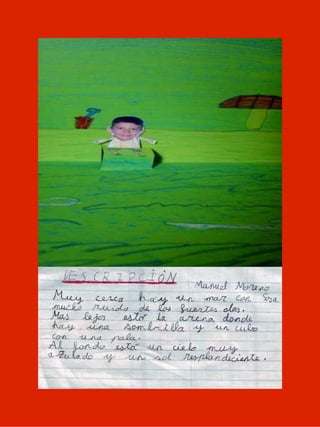 DESCRIPCIÓN
Manuel Moreno
Muy cerca hay un mar con
mucho ruido de las fuertes olas.
Mas lejos está la arena donde
hay una sombrilla y un cubo
con una pala.
Al fondo está un cielo muy
azulado y un sol resplandeciente.